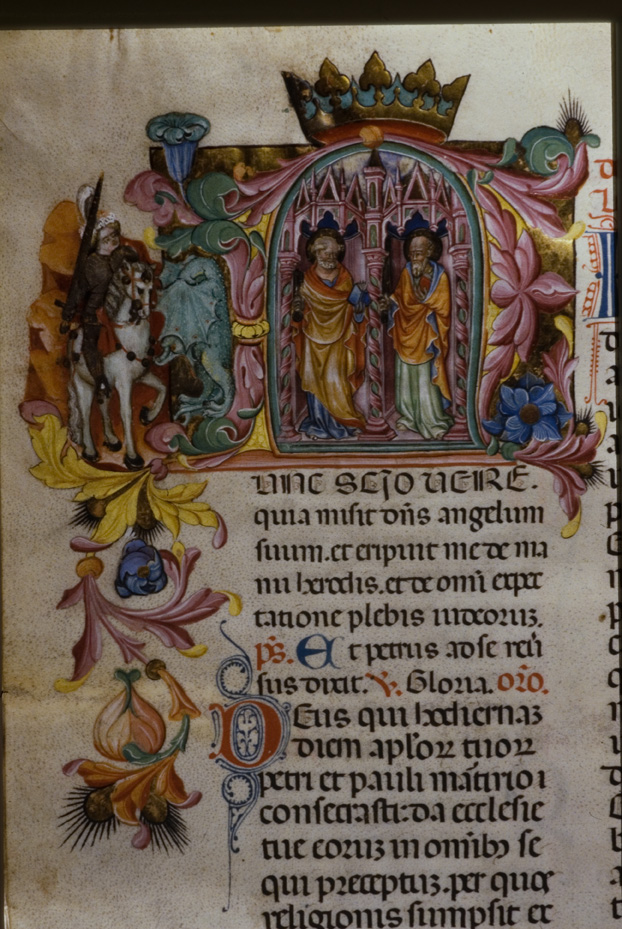 NUNC SCIO VERE.
quia misit dn̄s angelum
suum. et eripuit me de ma
nu herodis. et de om̄i expec
tatione plebis iudeoruꝫ.
ps̄. Et petrus ad se reū
sus dixit. V. Gloria. or̄o.
DEus qui hodiernaꝫ
diem apl̄oꝝ tuoꝝ
petri et pauli mārtirio
consecrasti: da ecclesie
tue eoruꝫ in om̄ibꝫ se
qui preceptuꝫ. per quos
religionis sumpsit ex